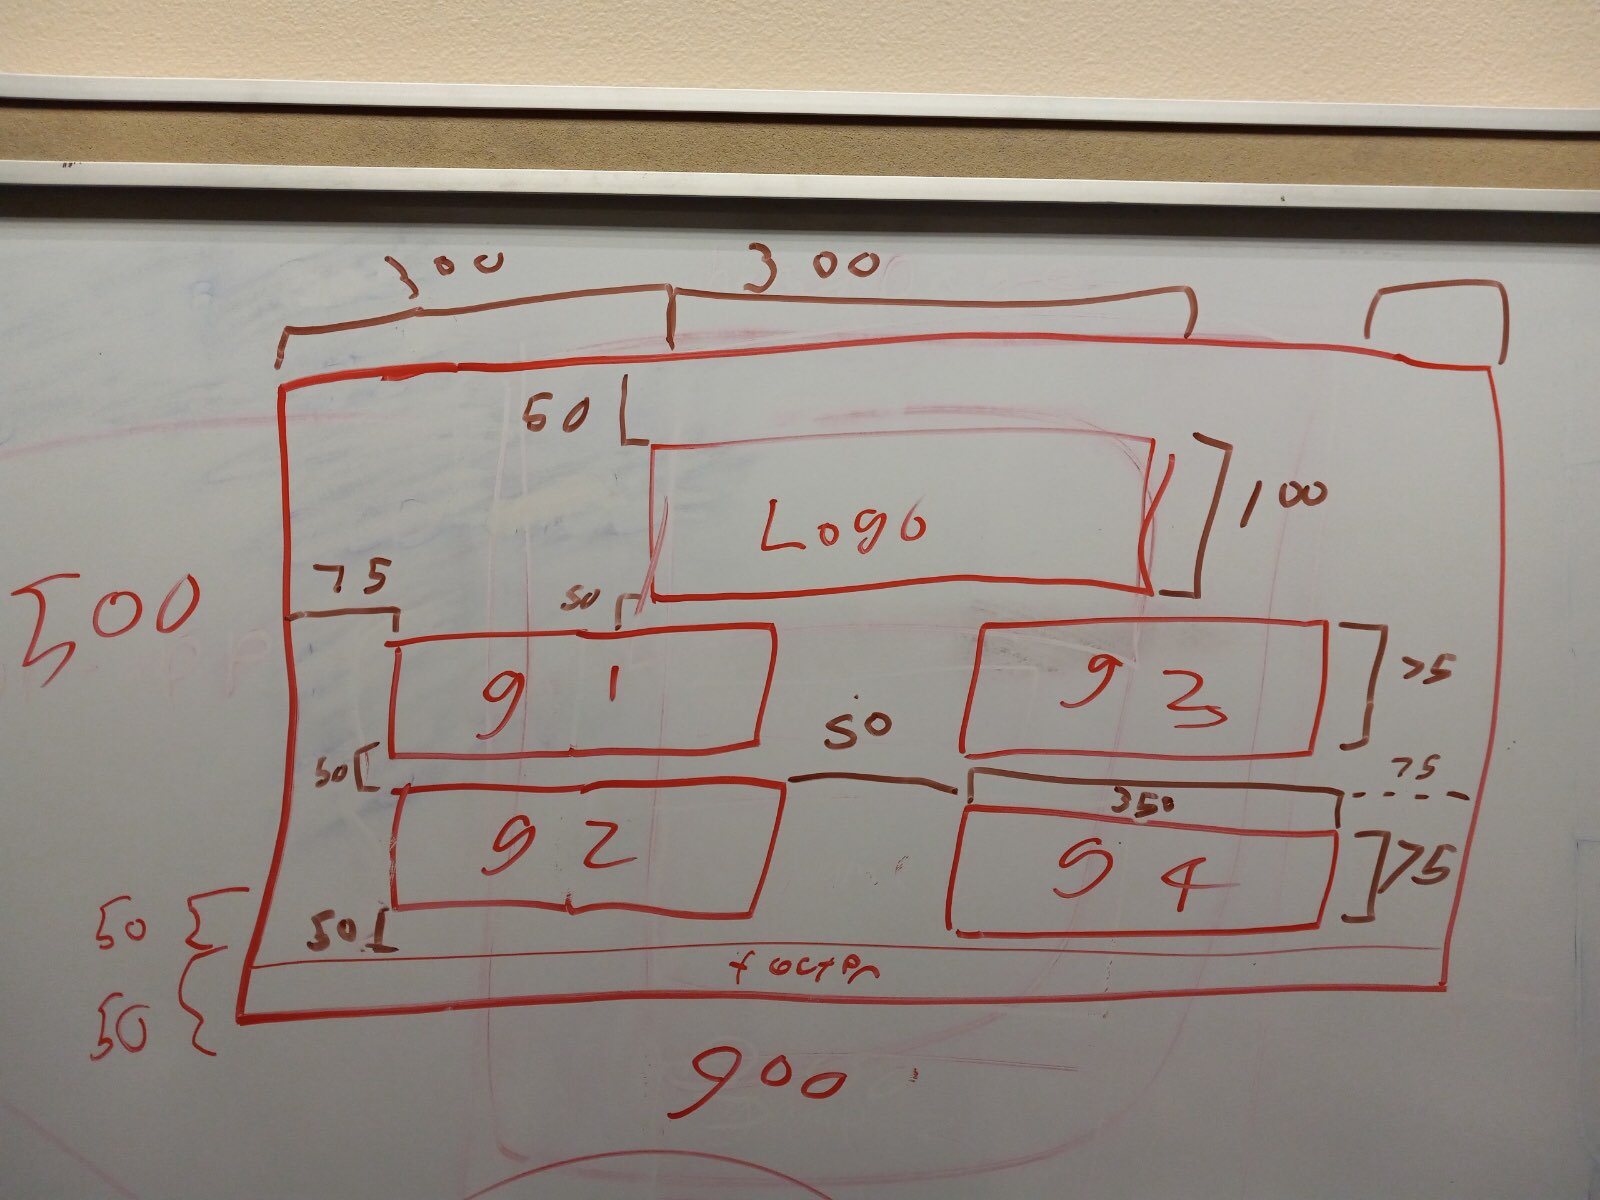 300 300
50
Logo
100
75
50
500
g 1
g 3
75
50
50
75
350
g 2
g 4
75
50
50
footer
50
900